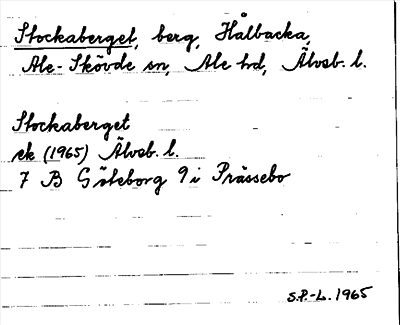 Stockaberget, berg, Hålbacka,
Ale-Skövde sn, Ale hd, Älvsb. l.
Stockaberget
ek (1965) Älvsb. l.
7 B Göteborg 9 i Prässebo
S.P.-L. 1965